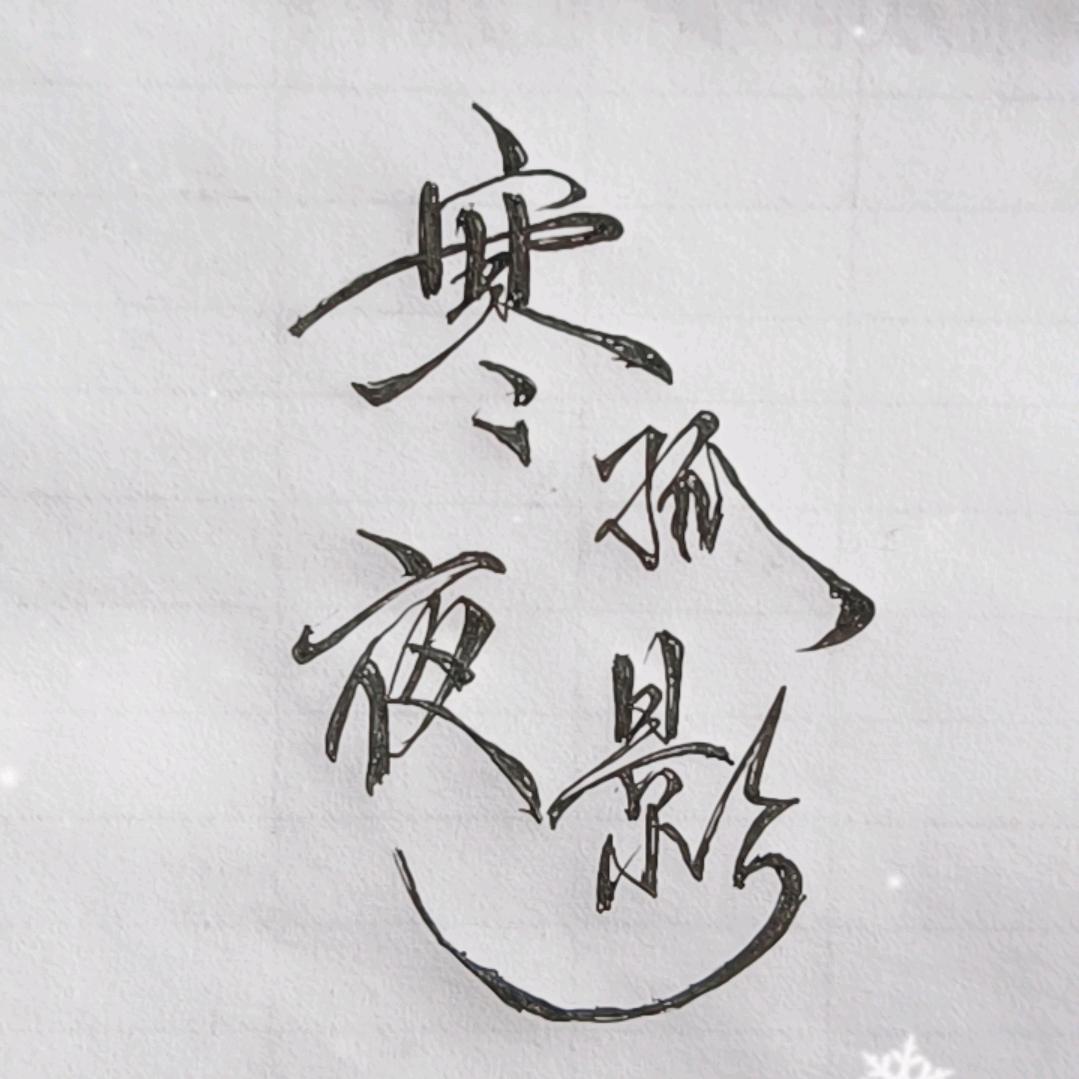 寒夜
孤影